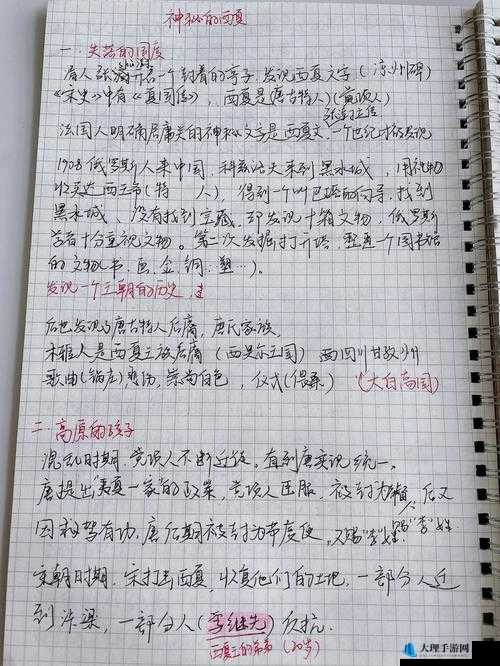 神秘的西夏
一. 失落的国度
清人张澍开启一个封着的亭子,发现西夏文字(凉州碑)
《宋史》中有《夏国传》,西夏是唐古特人)(党项人)
法国人明确居庸关的神秘文字是西夏文,一个世纪才被发现
1908 俄罗斯人来中国,科兹洛夫来到黑水城,用礼物
收买达西王爷(特 人),得到一个叫巴塔的向导,找到
黑水城、没有找到宝藏,却发现十箱文物,俄罗斯
学者十分重视文物。第二次发掘打开塔,整座一个图书馆
的文物(书、画、金、铜、塑…)。
发现一个王朝的历史,
后也发现了唐古特人后裔,唐氏家族
木雅人是西夏王族后裔(西吴尔王国)西四川甘孜州
歌曲(锅庄)悲伤,崇尚白色,仪式(倡桑)(大白高国)
二. 高原的孩子
混乱时期,党项人不断迁徙。直到唐实现统一。
唐提出"夷夏一家"的政策,党项人臣服,被封为 ,后又
因救驾有功,唐后期被封为节度使,又赐"李"姓
宋朝时期,宋打击西夏,收复他们的土地,一部分人迁
到汴梁,一部分人(李继先)反抗.
西夏王的爷爷(20岁)
大理手游网